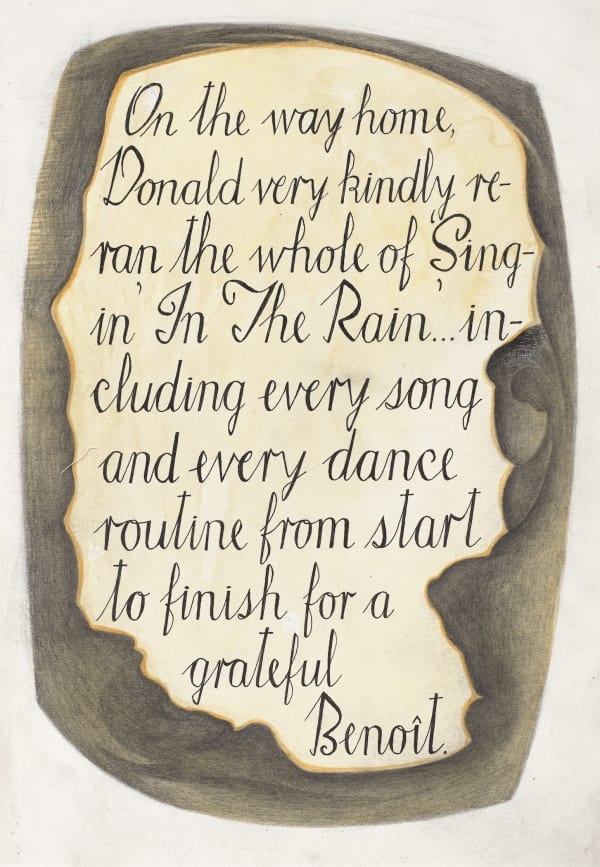 On the way home,
Donald very kindly re-
ran the whole of 'Sing-
in' In The Rain'... in-
cluding every song
and every dance
routine from start
to finish for a
grateful
Benoît.